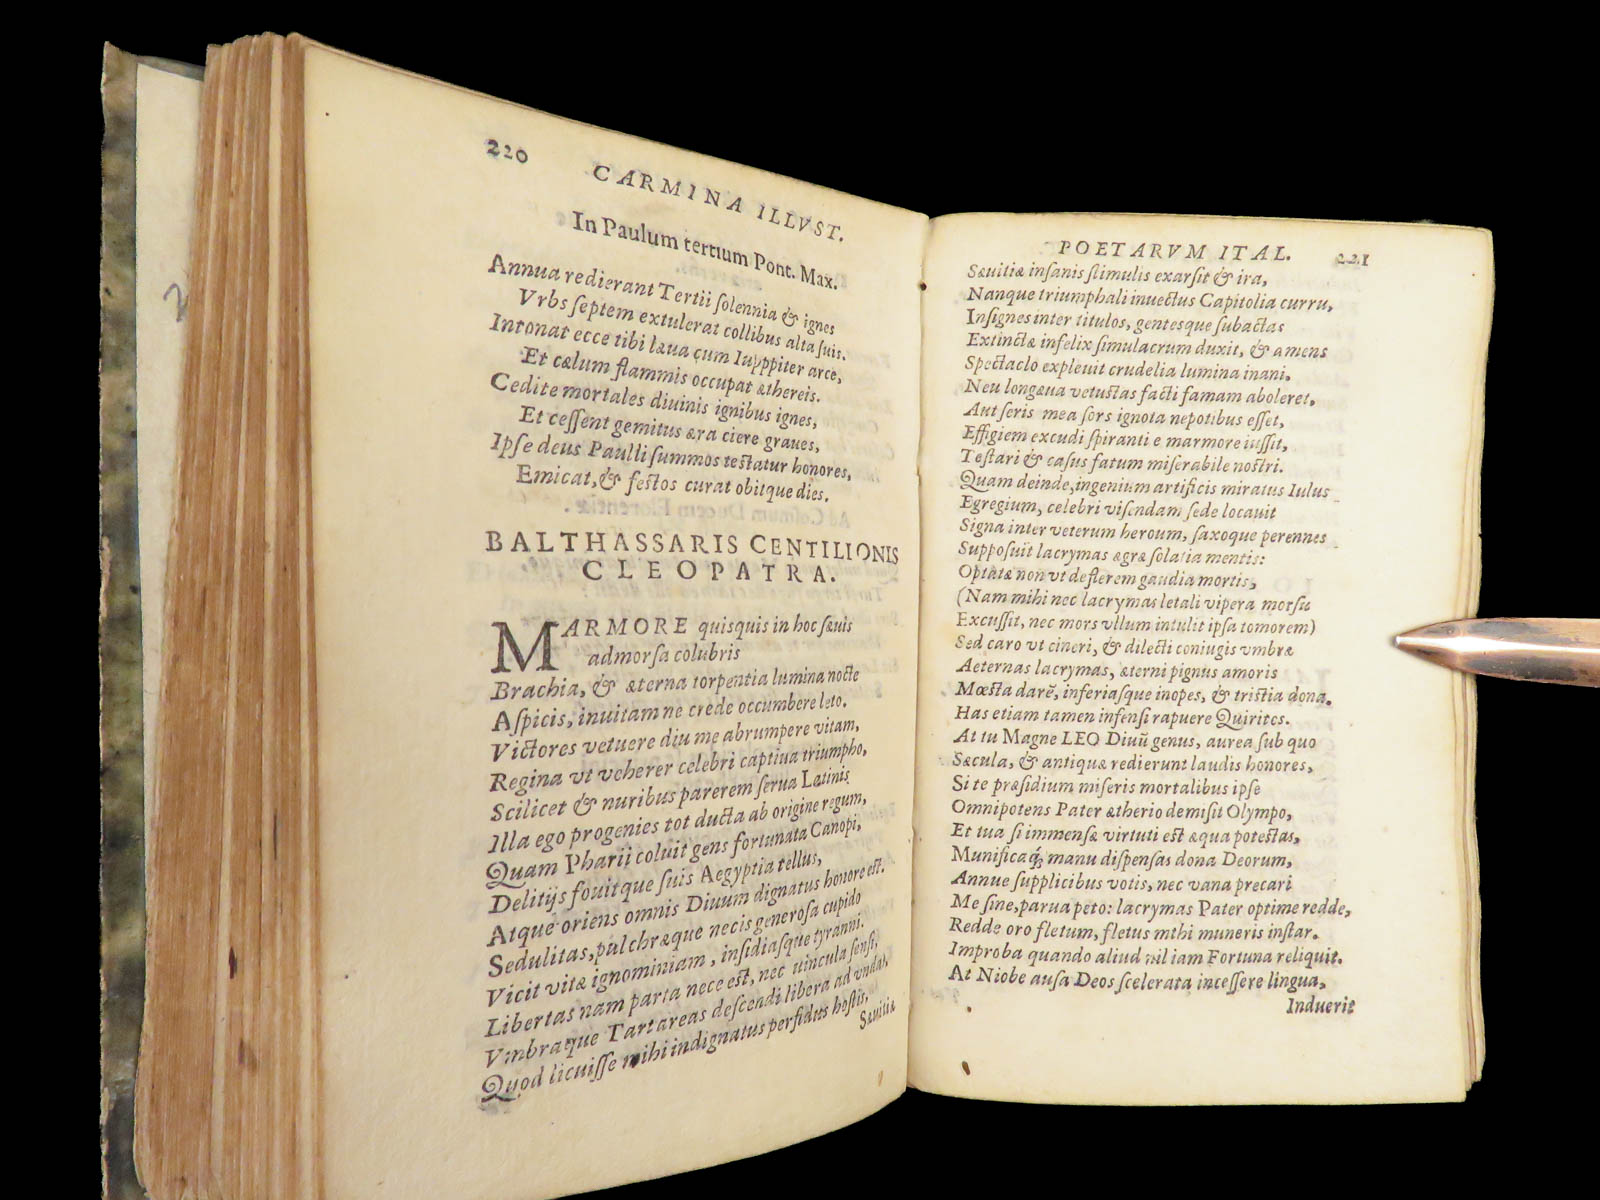 220
CARMINA ILLVST.
In Paulum tertium Pont. Max.
Annua redierant Tertii ſolennia & ignes
Vrbs ſeptem extulerat collibus alta ſuis.
Intonat ecce tibi læua cum Iupppiter arce,
Et cælum flammis occupat æthereis.
Cedite mortales diuinis ignibus ignes,
Et ceſſent gemitus æra ciere graues,
Ipſe deus Paulli ſummos teſtatur honores,
Emicat, & feſtos curat obitque dies.
BALTHASSARIS CENTILIONIS
CLEOPATRA.
MARMORE quisquis in hoc ſæuis
admorſa colubris
Brachia, & æterna torpentia lumina nocte
Aſpicis, inuitam ne crede occumbere leto.
Victores vetuere diu me abrumpere vitam,
Regina vt veherer celebri captiua triumpho,
Scilicet & nuribus parerem ſerua Latinis
Illa ego progenies tot ducta ab origine regum,
Quam Pharii coluit gens fortunata Canopi,
Delitijs fouitque ſuis Aegyptia tellus,
Atque oriens omnis Diuum dignatus honore eſt.
Sedulitas, pulchræque necis generoſa cupido
Vicit vitæ ignominiam, inſidiaſque tyranni.
Libertas nam parta nece eſt, nec uincula ſenſi,
Vmbraque Tartareas deſcendi libera ad vndas.
Quod licuiſſe mihi indignatus perfidus hoſtis,
Sæuitiæ
POETARVM ITAL.
221
Sæuitiæ inſanis ſtimulis exarſit & ira,
Nanque triumphali inuectus Capitolia curru,
Inſignes inter titulos, gentesque ſubactas
Extinctæ infelix ſimulacrum duxit, & amens
Spectaclo expleuit crudelia lumina inani.
Neu longæua vetuſtas facti famam aboleret,
Aut ſeris mea ſors ignota nepotibus eſſet,
Effigiem excudi ſpiranti e marmore iuſſit,
Teſtari & caſus fatum miſerabile noſtri.
Quam deinde, ingenium artificis miratus Iulus
Egregium, celebri viſendam ſede locauit
Signa inter veterum heroum, ſaxoque perennes
Suppoſuit lacrymas ægræ ſolatia mentis:
Optatæ non vt deflerem gaudia mortis,
(Nam mihi nec lacrymas letali vipera morſu
Excuſſit, nec mors vllum intulit ipſa tomorem)
Sed caro vt cineri, & dilecti coniugis vmbræ
Aeternas lacrymas, æterni pignus amoris
Mœſta darē, inferiaſque inopes, & triſtia dona.
Has etiam tamen infenſi rapuere Quirites.
At tu Magne LEO Diuū genus, aurea ſub quo
Sæcula, & antiquæ redierunt laudis honores,
Si te præſidium miſeris mortalibus ipſe
Omnipotens Pater ætherio demiſit Olympo,
Et tua ſi immenſæ virtuti eſt æqua poteſtas,
Munificaq́; manu diſpenſas dona Deorum,
Annue ſupplicibus votis, nec vana precari
Me ſine, parua peto: lacrymas Pater optime redde,
Redde oro fletum, fletus mihi muneris inſtar.
Improba quando aliud nil iam Fortuna reliquit.
At Niobe auſa Deos ſcelerata inceſſere lingua,
Induerit